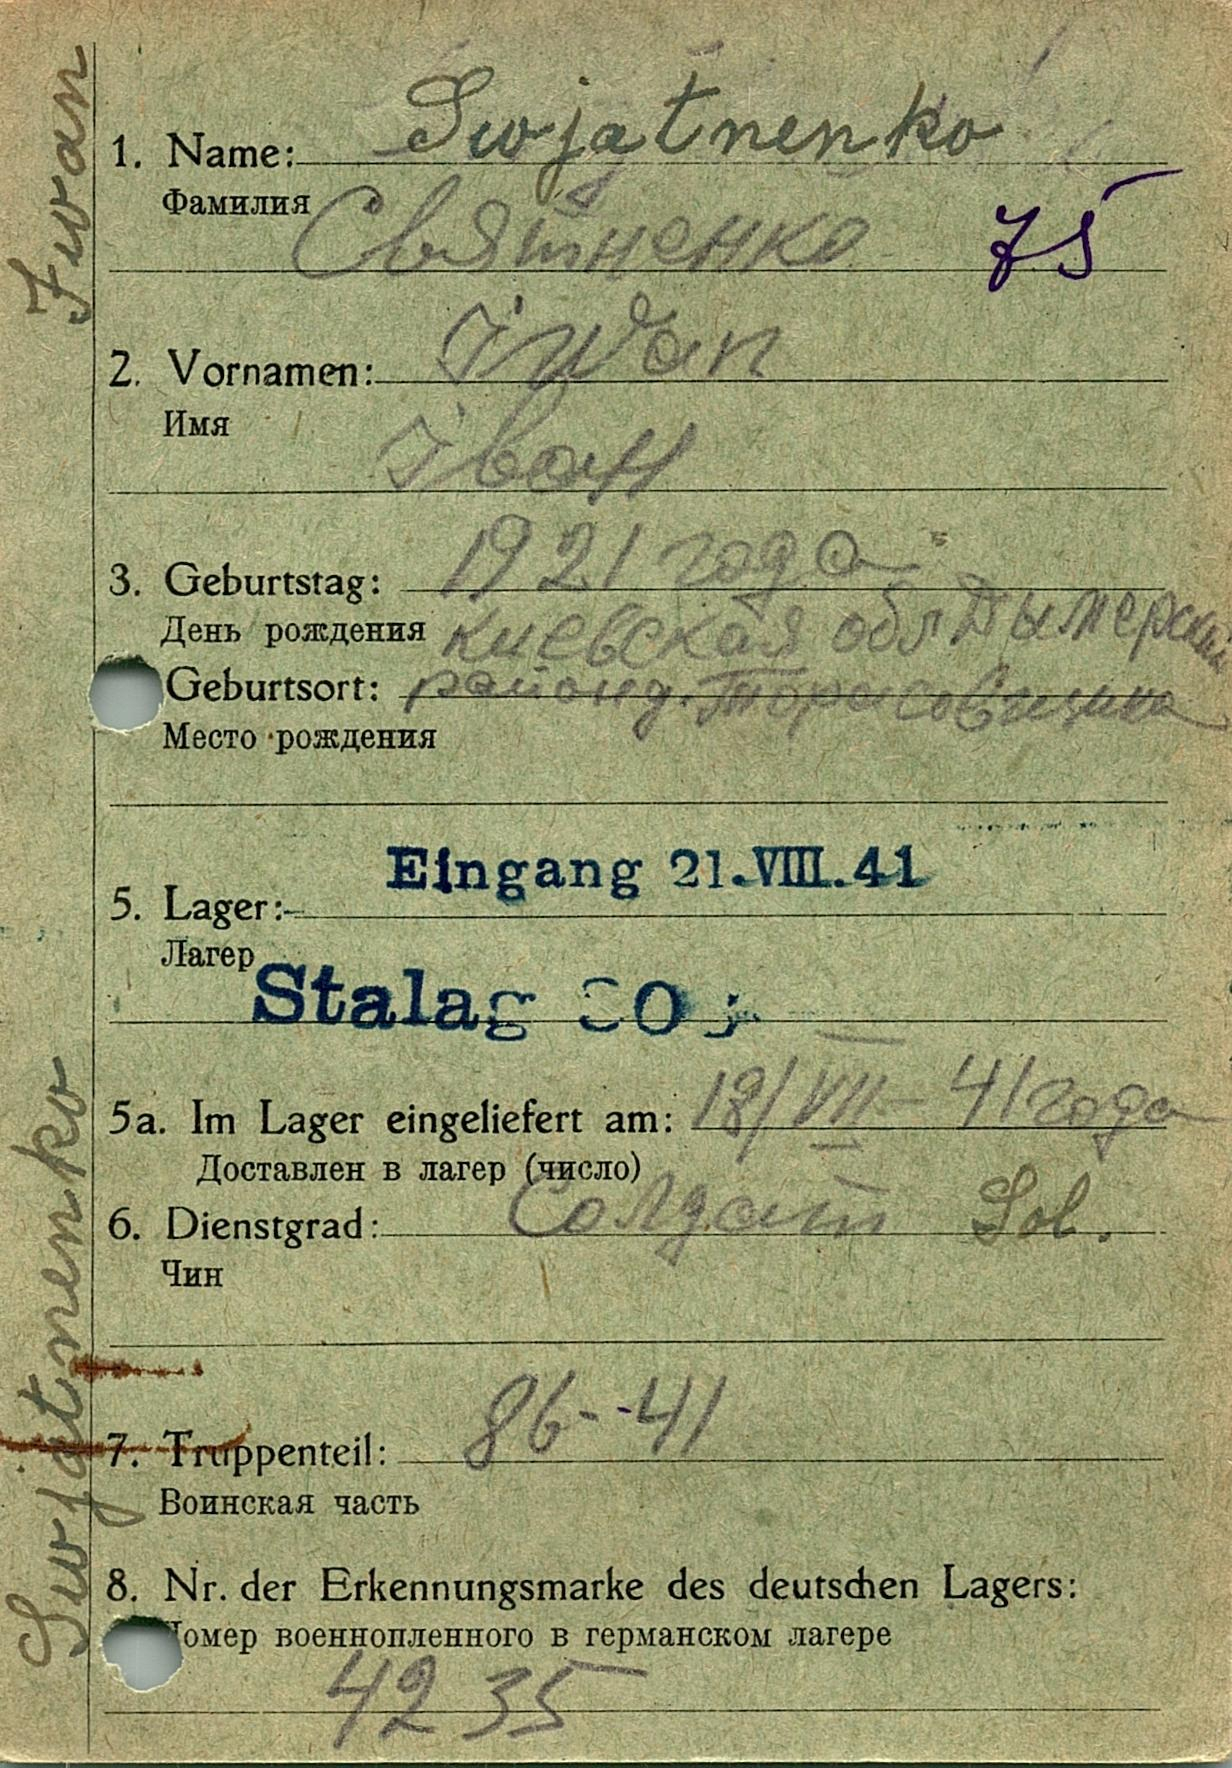 Iwan
Swjatnenko
1. Name: Swjatnenko
Фамилия Святненко 75
2. Vornamen: Iwan
Имя
Іван
3. Geburtstag: 1921 года
День рождения Киевская обл Дымерский
Geburtsort: район д.
Место рождения
Eingang 21.VIII.41
5. Lager:
Лагер
Stalag
5a. Im Lager eingeliefert am: 18/VII - 41 года
Доставлен в лагер (число)
6. Dienstgrad: Солдат Sol.
Чин
7. Truppenteil: 86--41
Воинская часть
8. Nr. der Erkennungsmarke des deutschen Lagers:
Номер военнопленного в германском лагере
4235